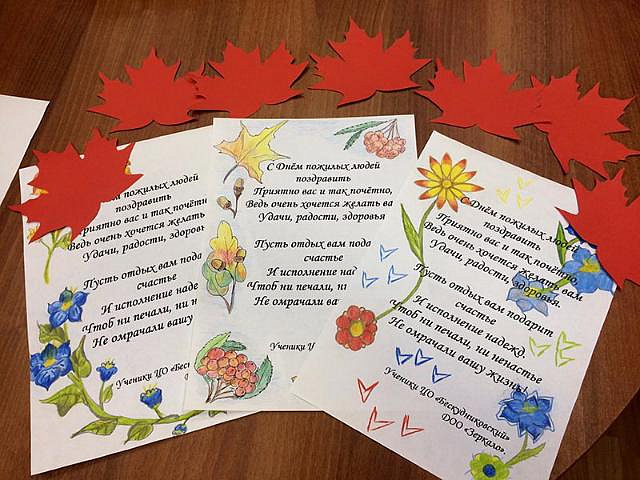 м пожилых людей
поздравить
Приятно вас и так почётн
Ведь очень хочется желать
Удачи, радости, здоровь
Пусть отдых вам пода
счастье
И исполнение наде
Чтоб ни печали, ни н
Не омрачали вашу
Ученики ЦО «Бес
С Днём пожилых людей
поздравить
Приятно вас и так почётно,
Ведь очень хочется желать ва
Удачи, радости, здоровья
Пусть отдых вам пода
счастье
И исполнение над
Чтоб ни печали, н
Не омрачали ва
Ученики Ц
С Днём пожилых людей
поздравить
Приятно вас и так почётно,
Ведь очень хочется желать вам
Удачи, радости, здоровья.
Пусть отдых вам подарит
счастье
И исполнение надежд.
Чтоб ни печали, ни ненастье
Не омрачали вашу жизнь.
Ученики ЦО «Бескудниковский»
ДОО «Зеркало».